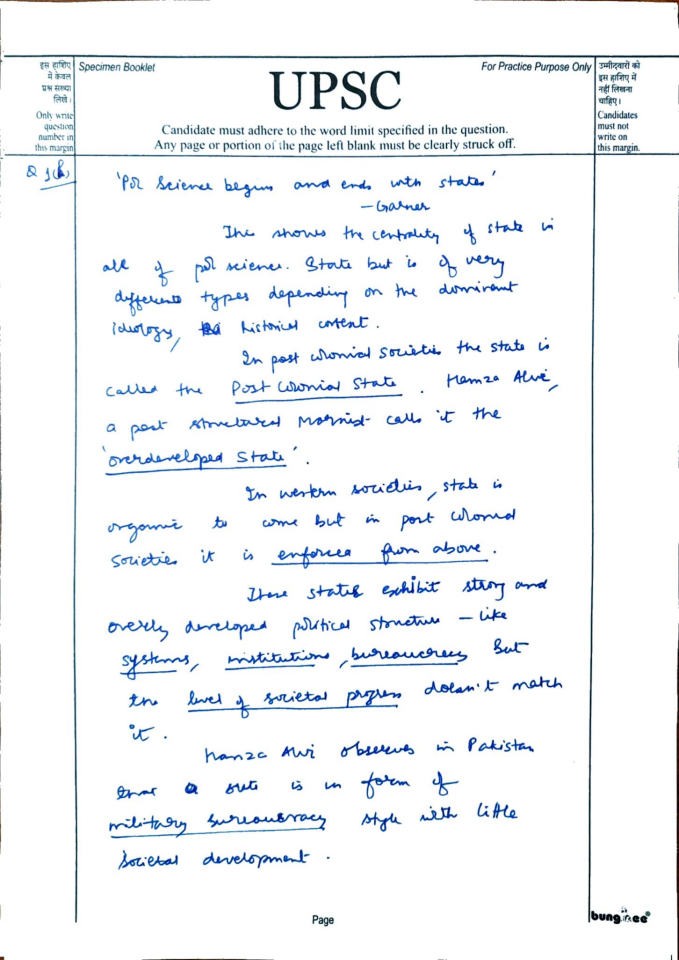 इस हाशिए
में केवल
प्रश्न संख्या
लिखें।
Only write
question
number in
this margin
Specimen Booklet
For Practice Purpose Only
UPSC
Candidate must adhere to the word limit specified in the question.
Any page or portion of the page left blank must be clearly struck off.
उम्मीदवारों को
इस हाशिए में
नहीं लिखना
चाहिए।
Candidates
must not
write on
this margin.
Q 1(b)
'Pol Science begins and ends with states'
– Garner
The shows the centrality of state in
all of pol science. State but is of very
different types depending on the dominant
ideology, historical context.
In post colonial societies the state is
called the Post Colonial State. Hamza Alvi,
a post structural Marxist calls it the
'overdeveloped State'.
In western societies, state is
organic to come but in post colonial
societies it is enforced from above.
These states exhibit strong and
overly developed political structure – like
systems, institutions, bureaucracy But
the level of societal progress doesn't match
it.
Hamza Alvi observes in Pakistan
that a state is in form of
military bureaucracy style with little
societal development.
Page
bungree